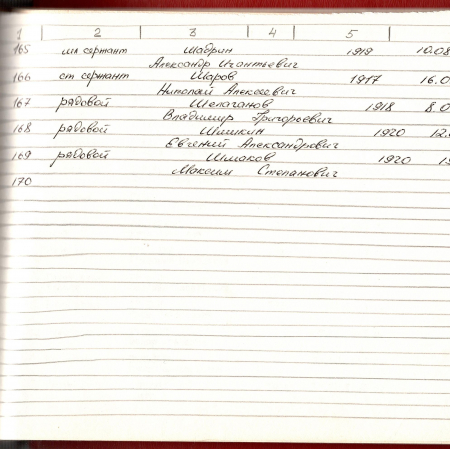 1 2 3 4 5
165 мл сержант Шадрин 1919 10.08
Александр Игнатьевич
166 ст сержант Шаров 1917 16.0
Николай Алексеевич
167 рядовой Шелаганов 1918 8.0
Владимир Григорьевич
168 рядовой Шишкин 1920 12.
Евгений Александрович
169 рядовой Шмаков 1920
Максим Степанович
170